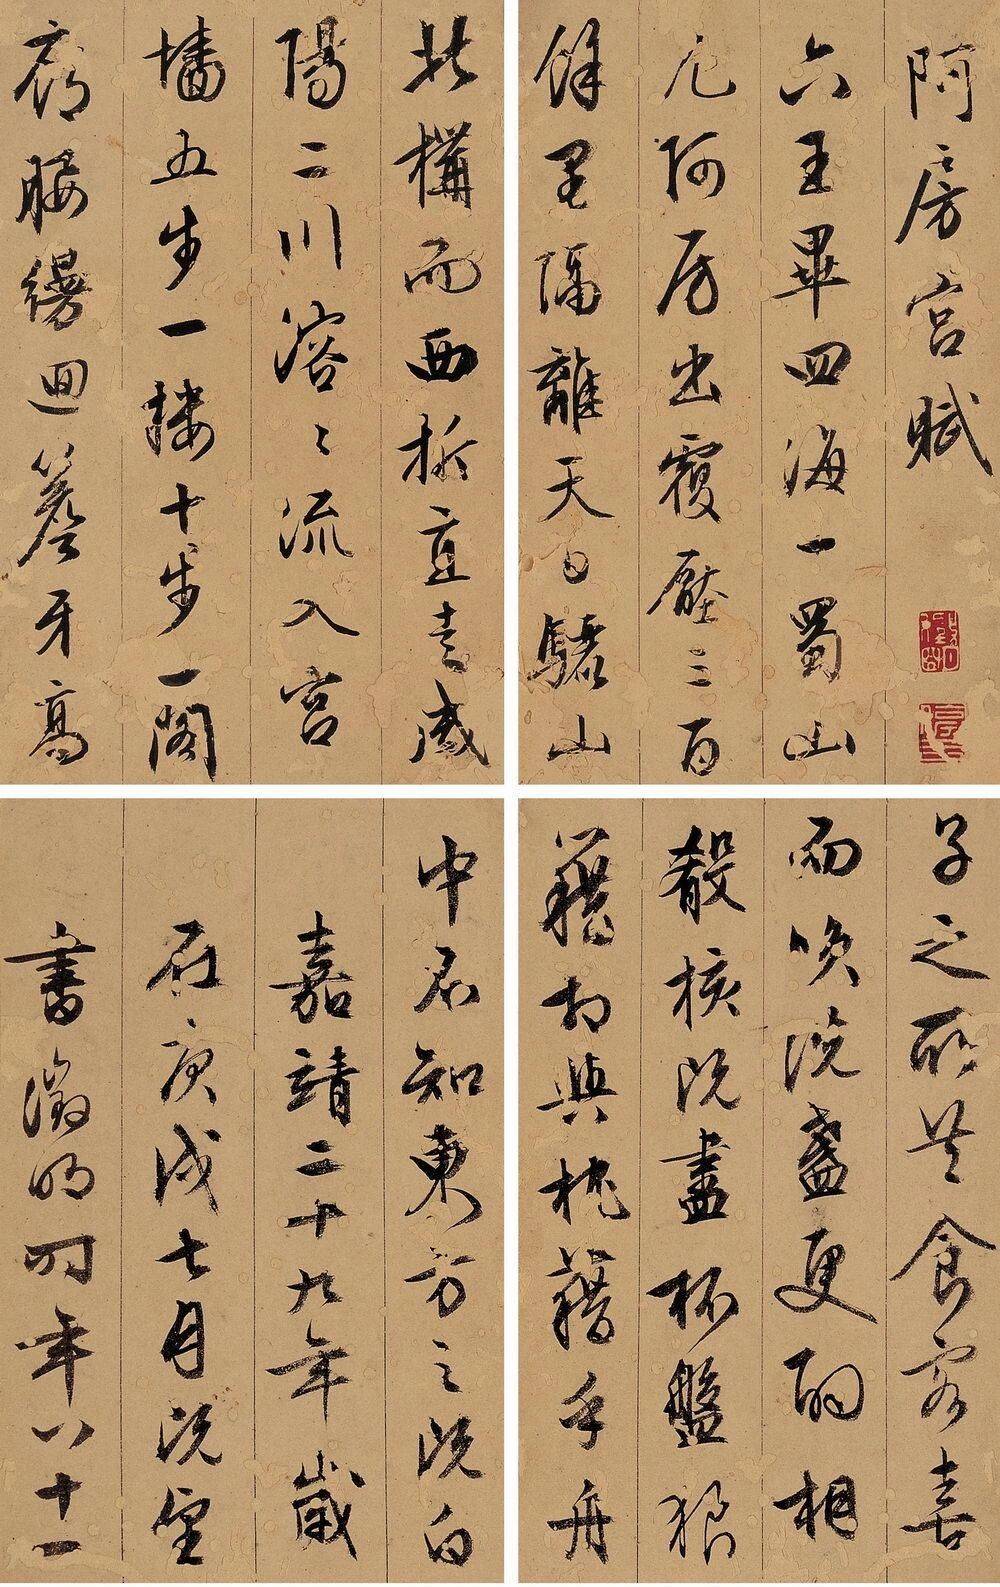 阿房宮賦
六王畢四海一蜀山
兀阿房出覆壓三百
餘里隔離天日驪山
北構而西折直走咸
陽二川溶〻流入宮
墻五步一樓十步一閣
廊腰縵迴簷牙高
子之所共食客喜
而笑洗盞更酌相
殽核既盡杯盤狼
藉相與枕藉乎舟
中不知東方之既白
嘉靖二十九年歲
在庚戌七月既望
書徵明時年八十一